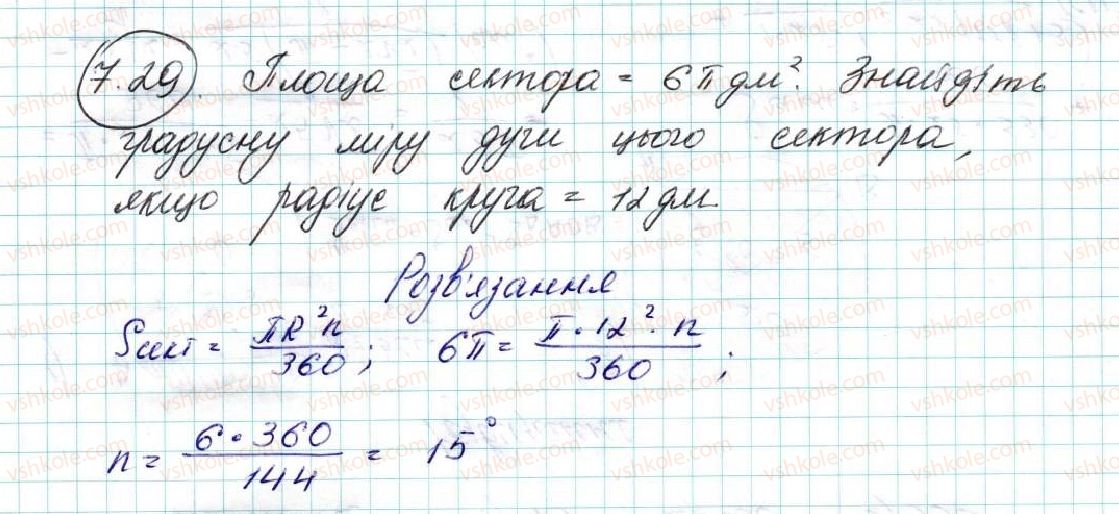 7.29. Площа сектора = 6π дм². Знайдіть
градусну міру дуги цього сектора,
якщо радіус круга = 12 дм.
Розв'язання
Sсект = πR²n/360; 6π = π·12²·n/360;
n = 6·360/144 = 15°